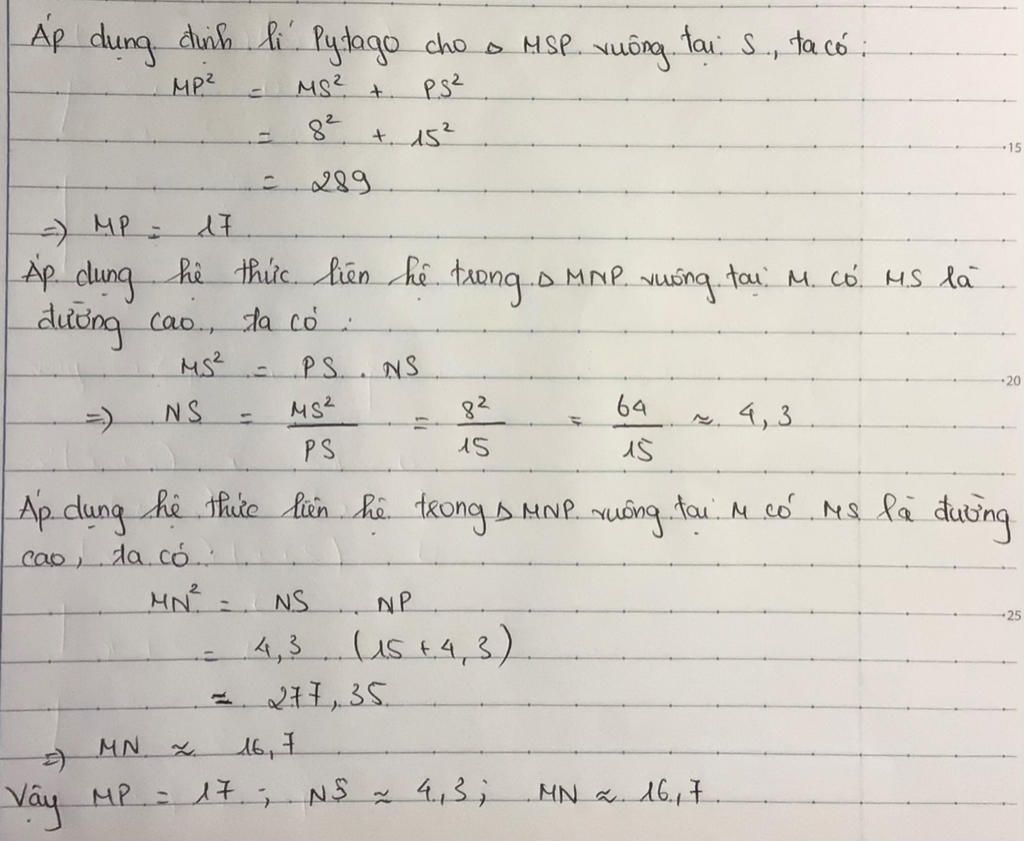 Áp dụng định lí Pytago cho △ MSP vuông tại S, ta có:
MP² = MS² + PS²
= 8² + 15²
= 289
=> MP = 17
Áp dụng hệ thức liên hệ trong △ MNP vuông tại M có MS là
đường cao, ta có:
MS² = PS . NS
=> NS = MS²/PS = 8²/15 = 64/15 ≈ 4,3
Áp dụng hệ thức liên hệ trong △ MNP vuông tại M có MS là đường
cao, ta có:
MN² = NS . NP
= 4,3 (15 + 4,3)
≈ 277,35
=> MN ≈ 16,7
Vậy MP = 17; NS ≈ 4,3; MN ≈ 16,7
15
20
25